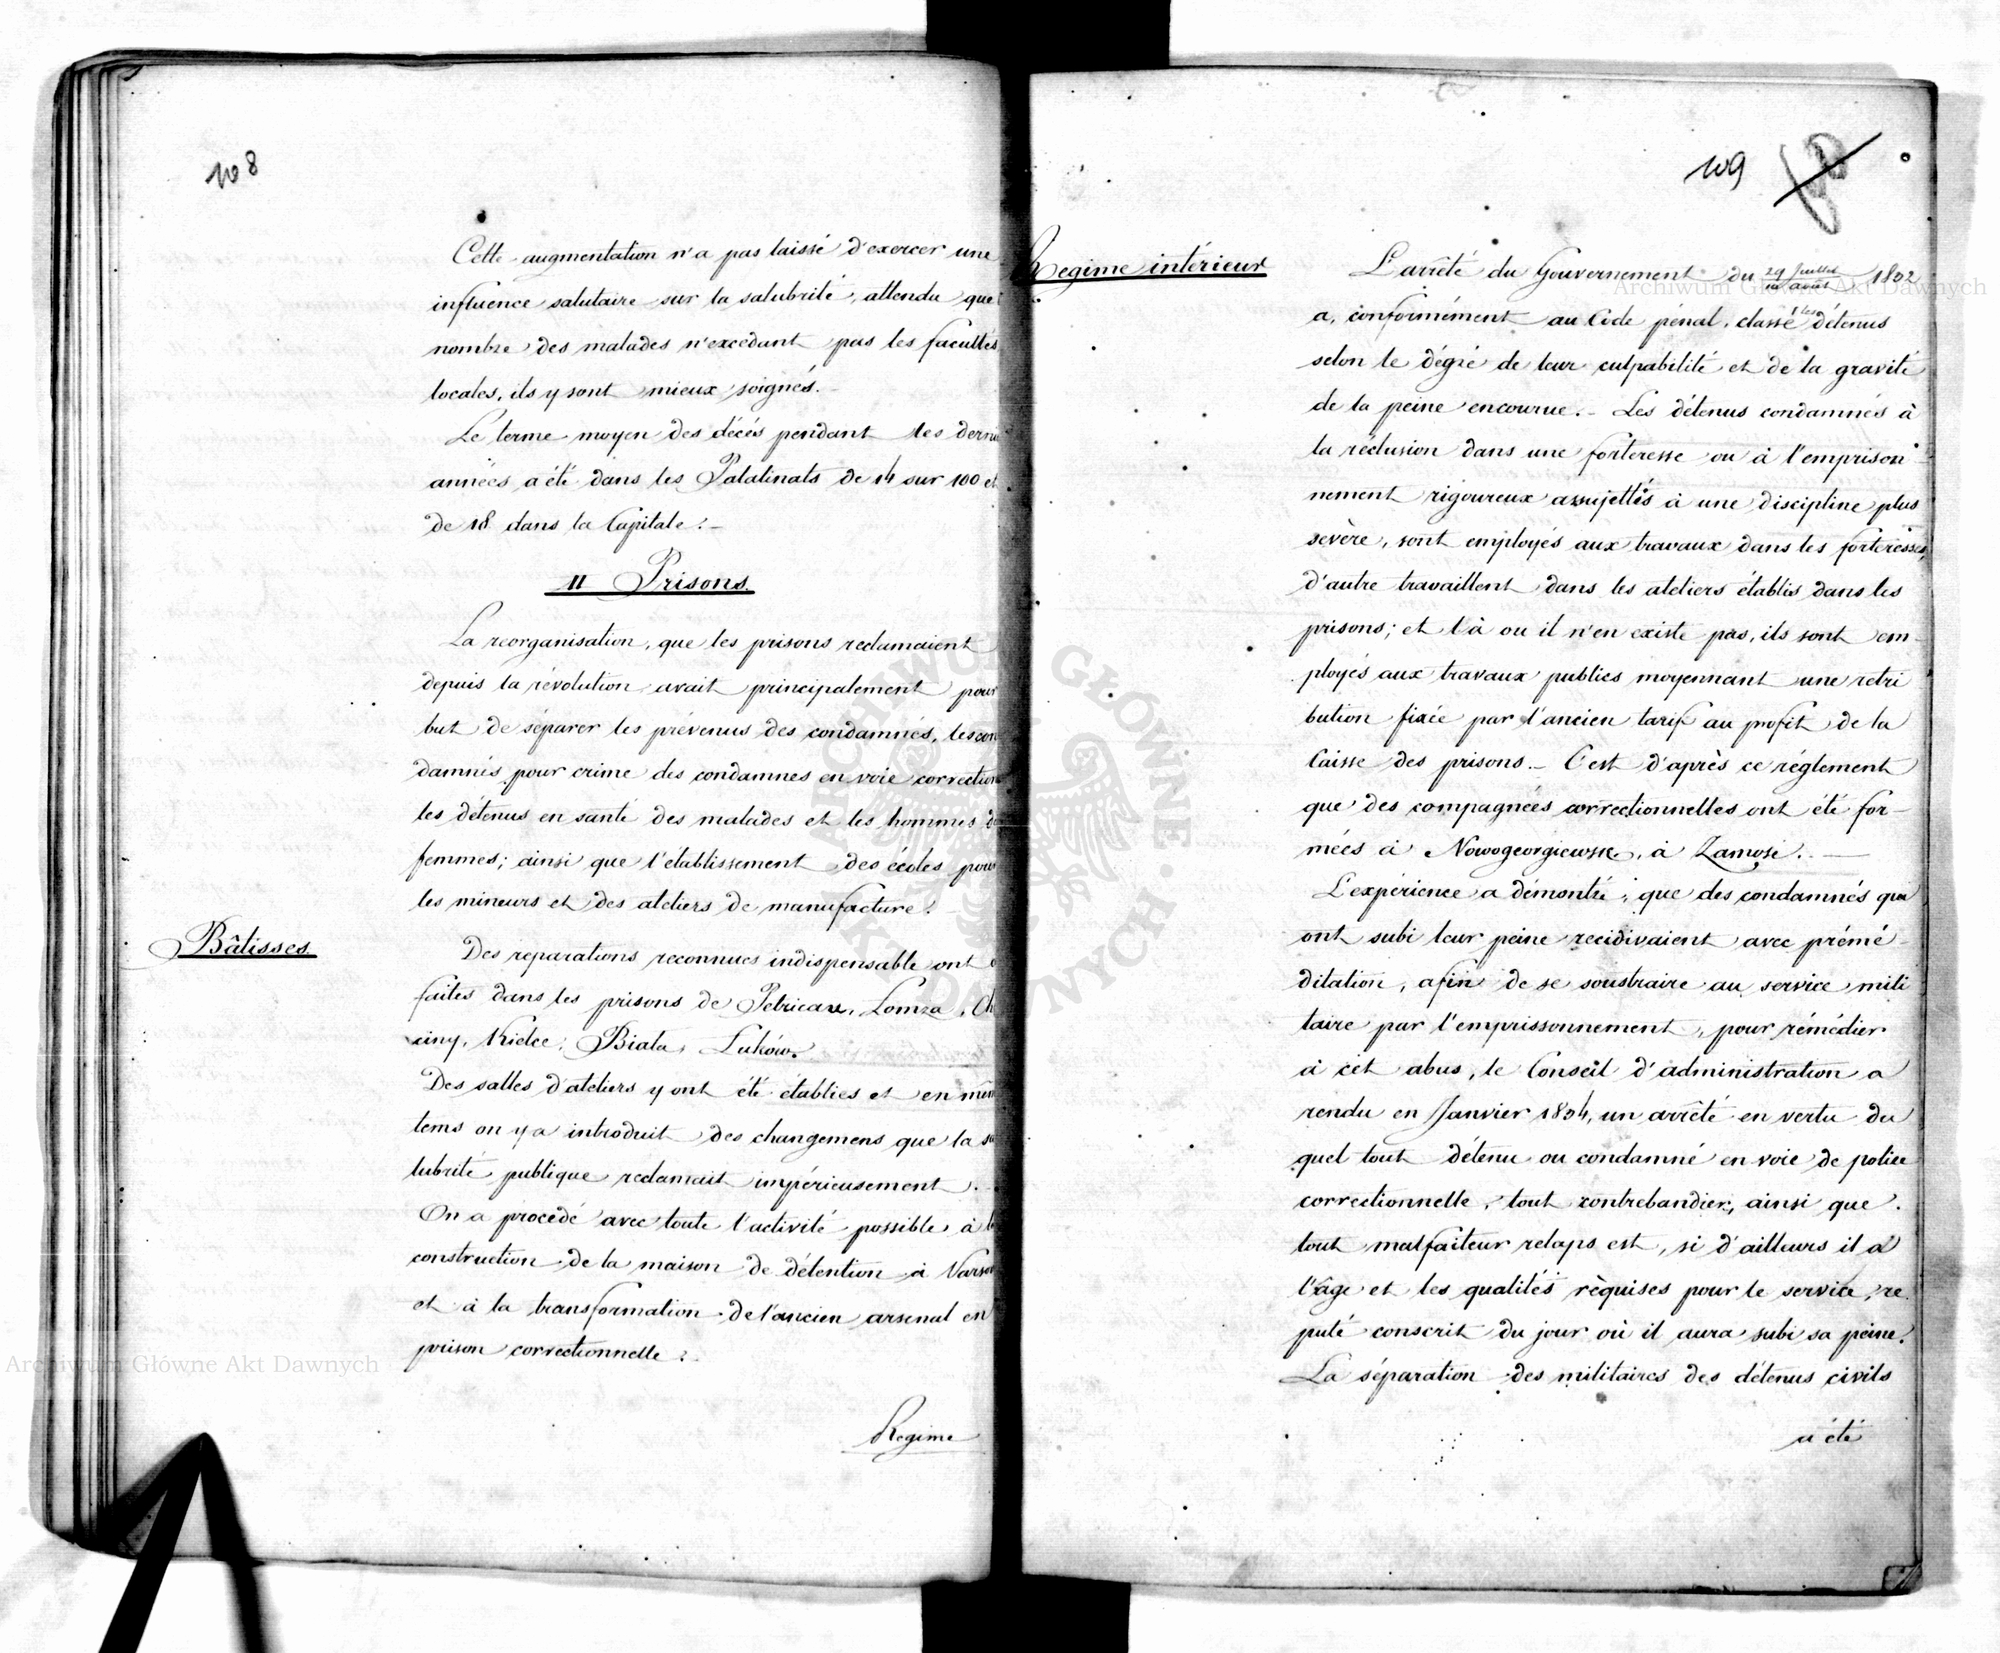 108
Cette augmentation n'a pas laissé d'exercer une
influence salutaire sur la salubrité, attendu que
nombre des malades n'excédant pas les facultés
locales, ils y sont mieux soignés.-
Le terme moyen des décés pendant les derni
années a été dans les Palatinats de 14 sur 100 et
de 18 dans la Capitale.-
II Prisons.
La reorganisation, que les prisons reclamaient
depuis la révolution avait principalement pour
but de séparer les prévenus des condamnés, les con
damnés pour crime des condamnes en voie correction
les détenus en santé des malades et les hommes d
femmes; ainsi que l'établissement des écoles pour
les mineurs et des ateliers de manufacture.-
Bâtisses.
Des reparations reconnues indispensable ont é
faites dans les prisons de Petricau, Lomza, Ch
ciny, Kielce, Biala, Luków.
Des salles d'ateliers y ont été établies et en mêm
tems on y a introduit des changemens que la sa
lubrité publique reclamait impérieusement.-
On a procédé avec toute l'activité possible à la
construction de la maison de détention à Varsov
et à la transformation de l'ancien arsenal en
prison correctionnelle.-
Regime
109
Regime intérieur
L'arrêté du Gouvernement du 29 Juillet / 10 août 1832
a, conformément au Code pénal, classé les détenus
selon le dégré de leur culpabilité et de la gravité
de la peine encourue.- Les détenus condamnés à
la réclusion dans une forteresse ou à l'emprison-
nement rigoureux assujettis à une discipline plus
sevère, sont employés aux travaux dans les forteresses,
d'autre travaillent dans les ateliers établis dans les
prisons; et là ou il n'en existe pas, ils sont em-
ployés aux travaux publics moyennant une retri
bution fixée par l'ancien tarif au profit de la
Caisse des prisons.- C'est d'après ce réglement
que des compagnées correctionnelles ont été for-
mées à Nowogeorgiewsk, à Zamosc.-
L'expérience a démontré, que des condamnés qui
ont subi leur peine recidivaient avec prémé-
ditation, afin de se soustraire au service mili
taire par l'emprissonnement, pour rémédier
à cet abus, le Conseil d'administration a
rendu en Janvier 1834, un arrêté en vertu du
quel tout détenu ou condamné en voie de police
correctionnelle, tout contrebandier, ainsi que
tout malfaiteur relaps est, si d'ailleurs il a
l'âge et les qualités réquises pour le service, re
puté conscrit du jour où il aura subi sa peine.
La séparation des militaires des détenus civils
a été
Archiwum Główne Akt Dawnych
Archiwum Główne Akt Dawnych
ARCHIWUM GŁÓWNE AKT DAWNYCH